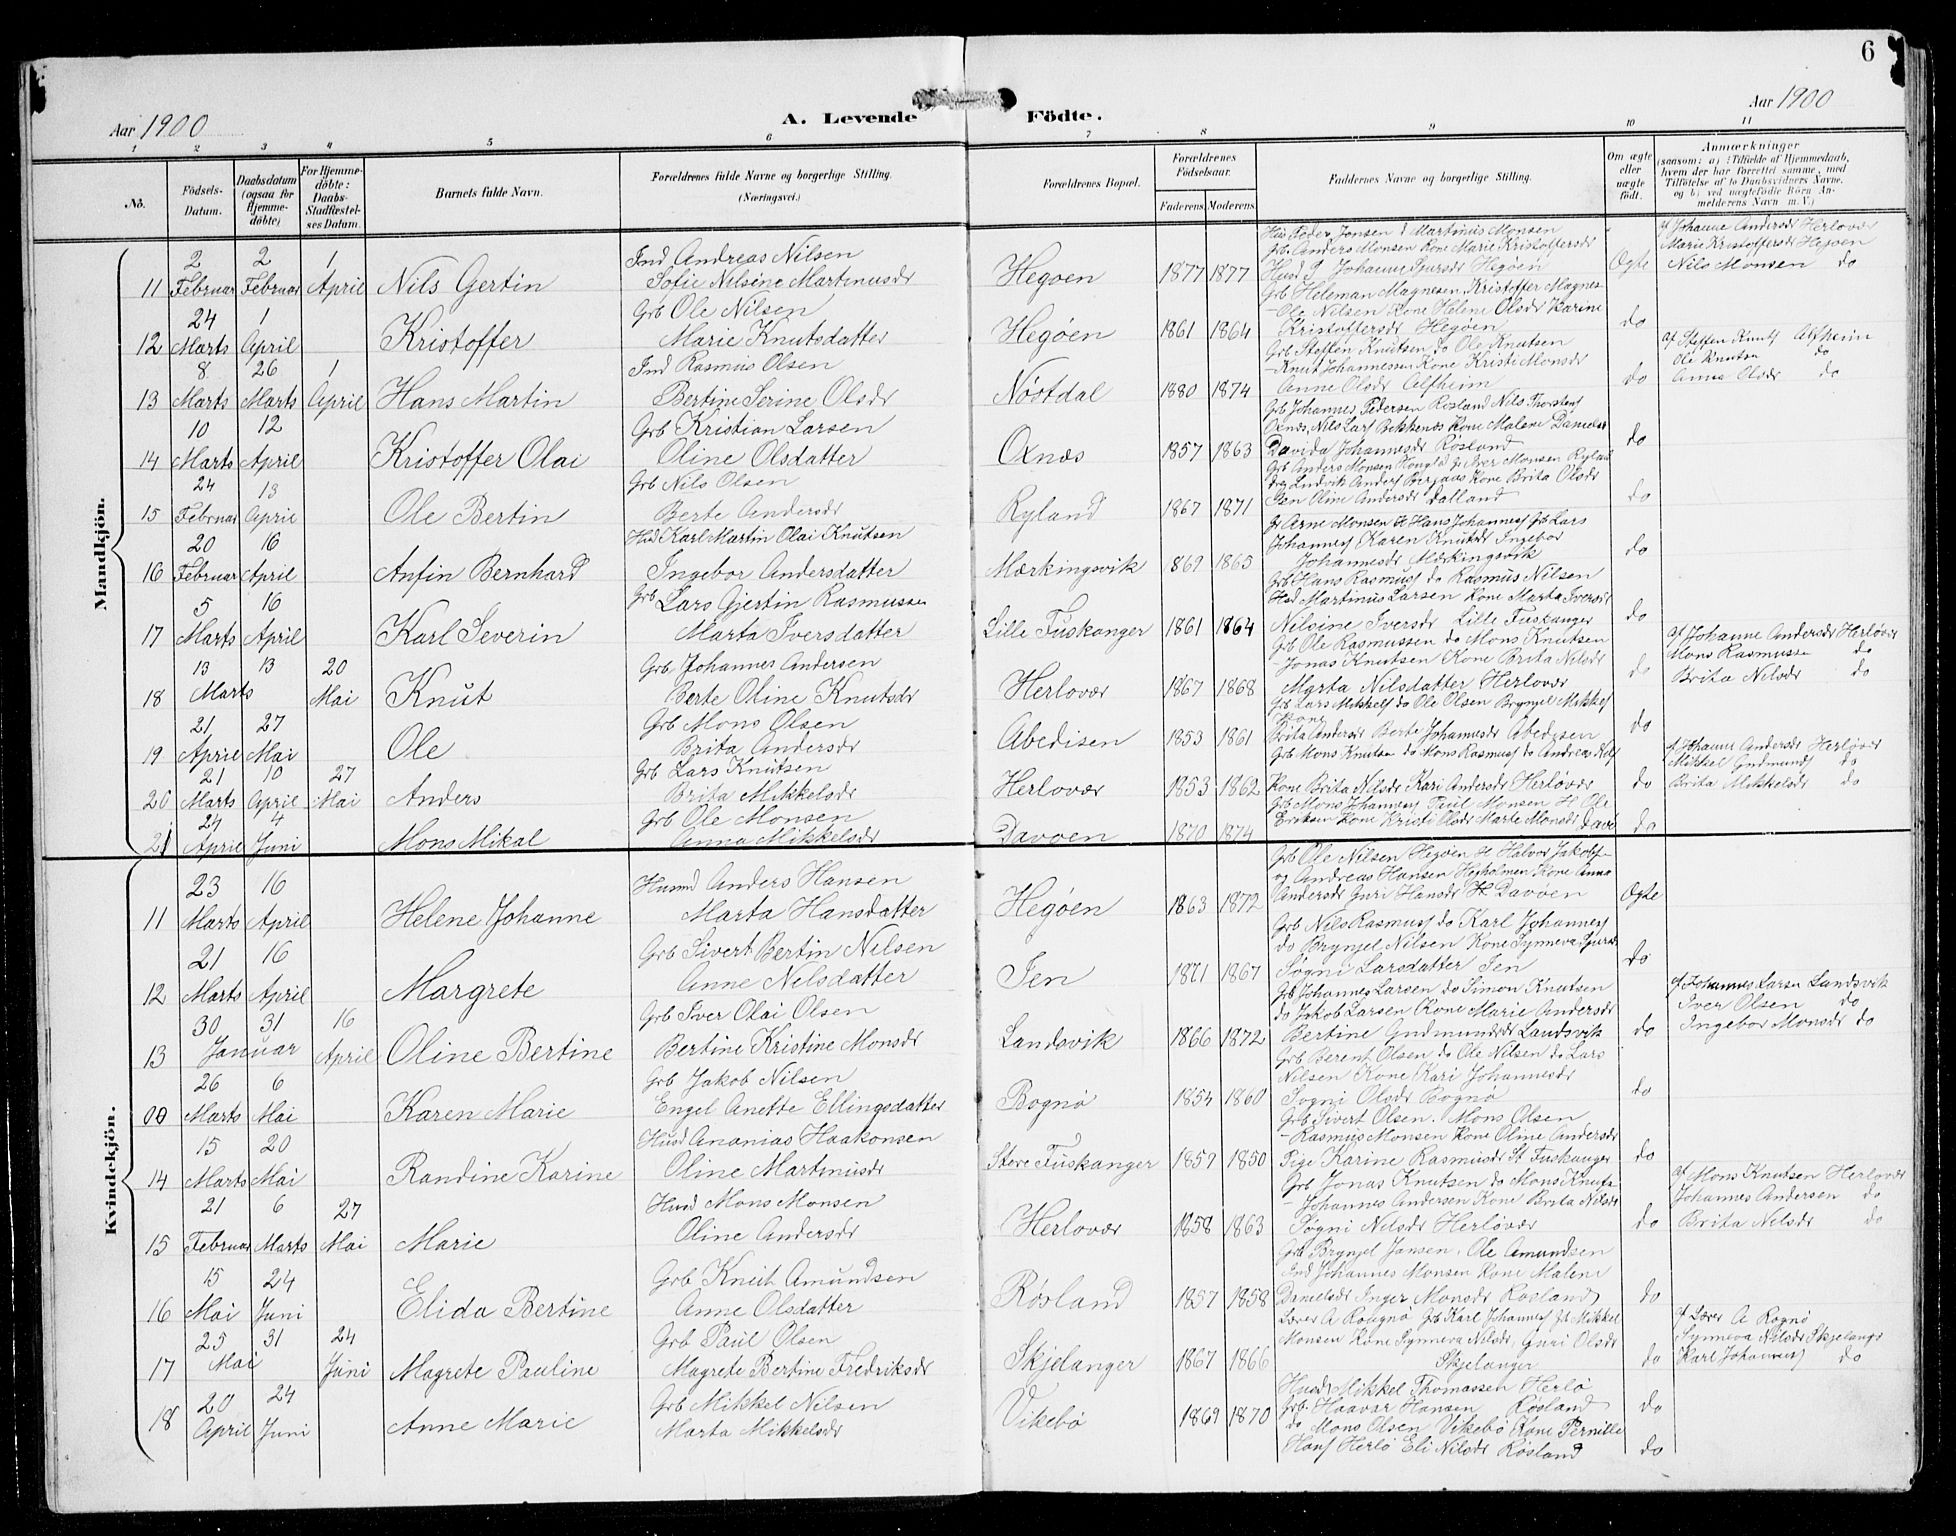 6
Aar 1900
A. Levende Födte.
Aar 1900
1 2 3 4 5 6 7 8 9 10 11
No.
Födsels-Datum.
Daabsdatum (ogsaa for Hjemme-döbte)
For Hjemme-döbte: Daabs-Stadfæstel-ses Datum.
Barnets fulde Navn.
Forældrenes fulde Navne og borgerlige Stilling. (Næringsvei.)
Forældrenes Bopæl.
Forældrenes Födselsaar.
Faderens. Moderens.
Faddernes Navne og borgerlige Stilling.
Om ægte eller uægte födt.
Anmærkninger
(saasom: a) i Tilfælde af Hjemmedaab,
hvem der har forrettet samme, med
Tilföielse af to Daabsvidners Navne,
og b) ved uægtefödte Börn An-
melderens Navn m. V.)
Mandkjön.
11 2 Februar 2 Februar 1 April Nils Gertin
Ind Andreas Nilsen
Sofie Nilsine Martinusdr
Hegöen 1877 1877
Anders Monsen Kone Marie Kristoffersdr
Ægte
af Johanne Andersdr Herlovær
Marie Kristoffersdr Hegöen
Nils Monsen do
12 24 Marts 1 April Kristoffer
Grb Ole Nilsen
Marie Knutsdatter
Hegöen 1861 1864
Grb Heleman Magnesen, Kristoffer Magnes
Ole Nilsen Kone Helene Olsdr Karine
Kristoffersdr Hegöen
do
13 8 Marts 26 Marts 1 April Hans Martin
Ind Rasmus Olsen
Bertine Serine Olsdr
Nöstdal 1880 1874
Grb Steffen Knutsen do Ole Knutsen
Knut Johannessen Kone Kristi Monsdr
Anne Olsdr Alfheim
do
af Steffen Knuts Alfheim
Ole Knutsen do
Anna Olsdr do
14 10 Marts 12 April Kristoffer Olai
Grb Kristian Larsen
Oline Olsdatter
Oxnæs 1857 1863
Grb Johannes Pedersen Rösland Nils Thorsens
Oxnæs, Nils Lars Bakkenæs Kone Malene Danielsdr
Davida Johannesdr Rösland
do
15 24 Februar 13 April Ole Bertin
Grb Nils Olsen
Berte Andersdr
Ryland 1867 1871
Oline Andersdr Dalland
do
16 20 Februar 16 April Anfin Bernhard
Hsd Karl Martin Olai Knutsen
Ingebor Andersdatter
Mærkingsvik 1869 1865
Gr Arne Monsen H Hans Johannes Grb Lars
Johannes Karen Knutsdr Ingebor
Johannesdr Mærkingsvik
do
17 5 Marts 16 April Karl Severin
Grb Lars Gjertin Rasmussen
Marta Iversdatter
Lille Fuskanger 1861 1864
Grb Hans Rasmus do Rasmus Nilsen
Hsd Martinus Larsen Kone Marta Iversdr
Nilsine Iversdr Lille Fuskanger
do
18 13 13 Marts 20 Mai Knut
Grb Johannes Andersen
Berte Oline Knutsdr
Herlovær 1867 1868
Grb Ole Rasmussen do Mons Knutsen
Jonas Knutsen Kone Brita Nilsdr
Marta Nilsdatter Herlovær
do
af Johanne Andersdr Herlövær
Mons Rasmussen do
Brita Nilsdr do
19 21 April 27 Mai Ole
Grb Mons Olsen
Brita Andersdr
Abedisen 1853 1861
Grb Lars Mikkels do Ole Olsen Brynjel Mikkels
Kone
Brita Andersdr Berte Johannesdr Abedisen
do
20 21 Marts 10 April 27 Mai Anders
Grb Lars Knutsen
Brita Mikkelsdr
Herlovær 1853 1862
Grb Mons Knutsen do Mons Rasmus do Andreas
Kone Brita Nilsdr Kari Andersdr Herlövær
do
af Johanne Andersdr Herlövær
Mikkel Gudmunds do
Brita Mikkelsdr do
21 24 April 4 Juni Mons Mikal
Grb Ole Monsen
Anna Mikkelsdr
Davöen 1870 1874
Grb Mons Johannes Paul Monsen H Ole
Eriksen Kone Kristi Olsdr Marte Monsdr Davö
do
Kvindekjön.
11 23 Marts 16 April Helene Johanne
Husmd Anders Hansen
Marta Hansdatter
Hegöen 1863 1872
Grb Ole Nilsen Hegöen H Halvor Jakobs
og Andreas Hansen Hegholmen Kone Anna
Andersdr Guri Hansdr H. Davöen
Ægte
12 21 Marts 16 April Margrete
Grb Sivert Bertin Nilsen
Anne Nilsdatter
Jen 1871 1867
Grb Nils Rasmus do Karl Johannes
do Brynjel Nilsen Kone Synneva
Sögni Larsdatter Jen
do
13 30 31 Januar 16 April Oline Bertine
Grb Iver Olai Olsen
Bertine Kristine Monsdr
Landsvik 1866 1872
Grb Johannes Larsen do Simon Knutsen
do Jakob Larsen Kone Marie Andersdr
Bertine Gudmundsdr Landsvik
do
af Johannes Larsen Landsvik
Iver Olsen do
Ingebor Monsdr do
00 26 Marts 6 Mai Karen Marie
Grb Jakob Nilsen
Engel Anette Ellingsdatter
Bognö 1854 1860
Grb Berent Olsen do Ole Nilsen do Lars
Nilsen Kone Kari Johannesdr
Sogni Olsdr Bognö
do
14 15 Marts 20 Mai Randine Karine
Husd Ananias Haakonsen
Oline Martinusdr
Store Fuskanger 1859 1850
Grb Sivert Olsen. Mons Olsen
Rasmus Monsen Kone Oline Andersdr
Pige Karine Rasmusdr St Fuskanger
do
15 21 Februar 6 Marts 27 Mai Marie
Husd Mons Monsen
Oline Andersdr
Herlovær 1858 1863
Grb Jonas Knutsen do Mons Knuts
Johannes Andersen Kone Brita Nilsdr
Sögni Nilsdr Herlövær
do
af Mons Knutsen Herlovær
Johannes Andersen do
Brita Nilsdr do
16 15 Mai 24 Juni Elida Bertine
Grb Knut Amundsen
Anne Olsdatter
Rösland 1857 1858
Grb Brynjel Jansen, Ole Amundsen
Ind Johannes Monsen Kone Malene
Danielsdr Inger Monsdr Rösland
do
17 25 31 Mai 24 Juni Magrete Pauline
Grb Paul Olsen
Magrete Bertine Fredriksdr
Skjelanger 1867 1866
Lærer A Rognö Grb Karl Johannes Grb Mikkel
Monsen Kone Synneva Nilsdr, Guri Olsdr
Skjelanger
do
af Lærer A Rognö
Synneva Nilsdr Skjelangr
Karl Johannes do
18 20 April 24 Juni Anne Marie
Grb Mikkel Nilsen
Marta Mikkelsdr
Vikebö 1869 1870
Husd Mikkel Thomassen Herlö
Grb Haavar Hansen Rösland
do Mons Olsen Vikebö Kone Pernille
Hans Herlö Eli Nilsdr Rösland
do
do